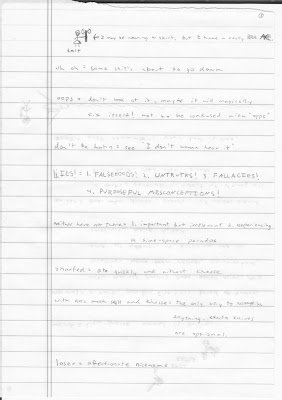 I may be wearing a skirt, but I have a really
skirt
uh oh = some shit's about to go down
oops = don't look at it, maybe it will magically
fix itself! not to be confused with "apps"
don't be hatin = see "I don't wanna hear it"
LIES! = 1. FALSEHOODS! 2. UNTRUTHS! 3 FALLACIES!
4. PURPOSEFUL MISCONCEPTIONS!
neither here nor there = 1. important but irrelevant 2. experiencing
a time-space paradox
snarfed = ate quickly and without
with and = the only way to
anything.
are optional.
loser = affectionate nickname